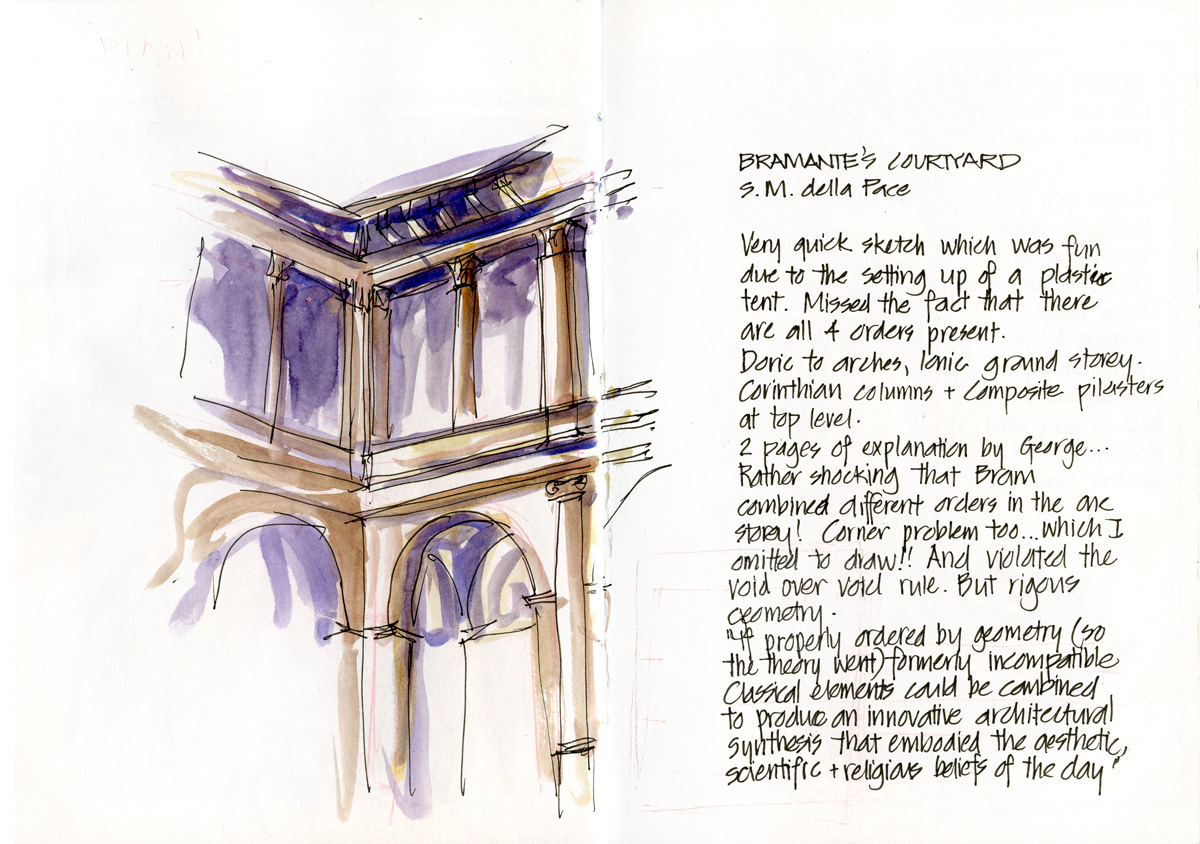 BRAMANTE'S COURTYARD
S. M. della Pace
Very quick sketch which was fun
due to the setting up of a plastic
tent. Missed the fact that there
are all 4 orders present.
Doric to arches, Ionic ground storey.
Corinthian columns + Composite pilasters
at top level.
2 pages of explanation by George...
Rather shocking that Bram
combined different orders in the one
storey! Corner problem too... which I
omitted to draw!! And violated the
void over void rule. But rigous
geometry.
"If properly ordered by geometry (so
the theory went) formerly incompatible
Classical elements could be combined
to produce an innovative architectural
synthesis that embodied the aesthetic,
scientific + religious beliefs of the day"